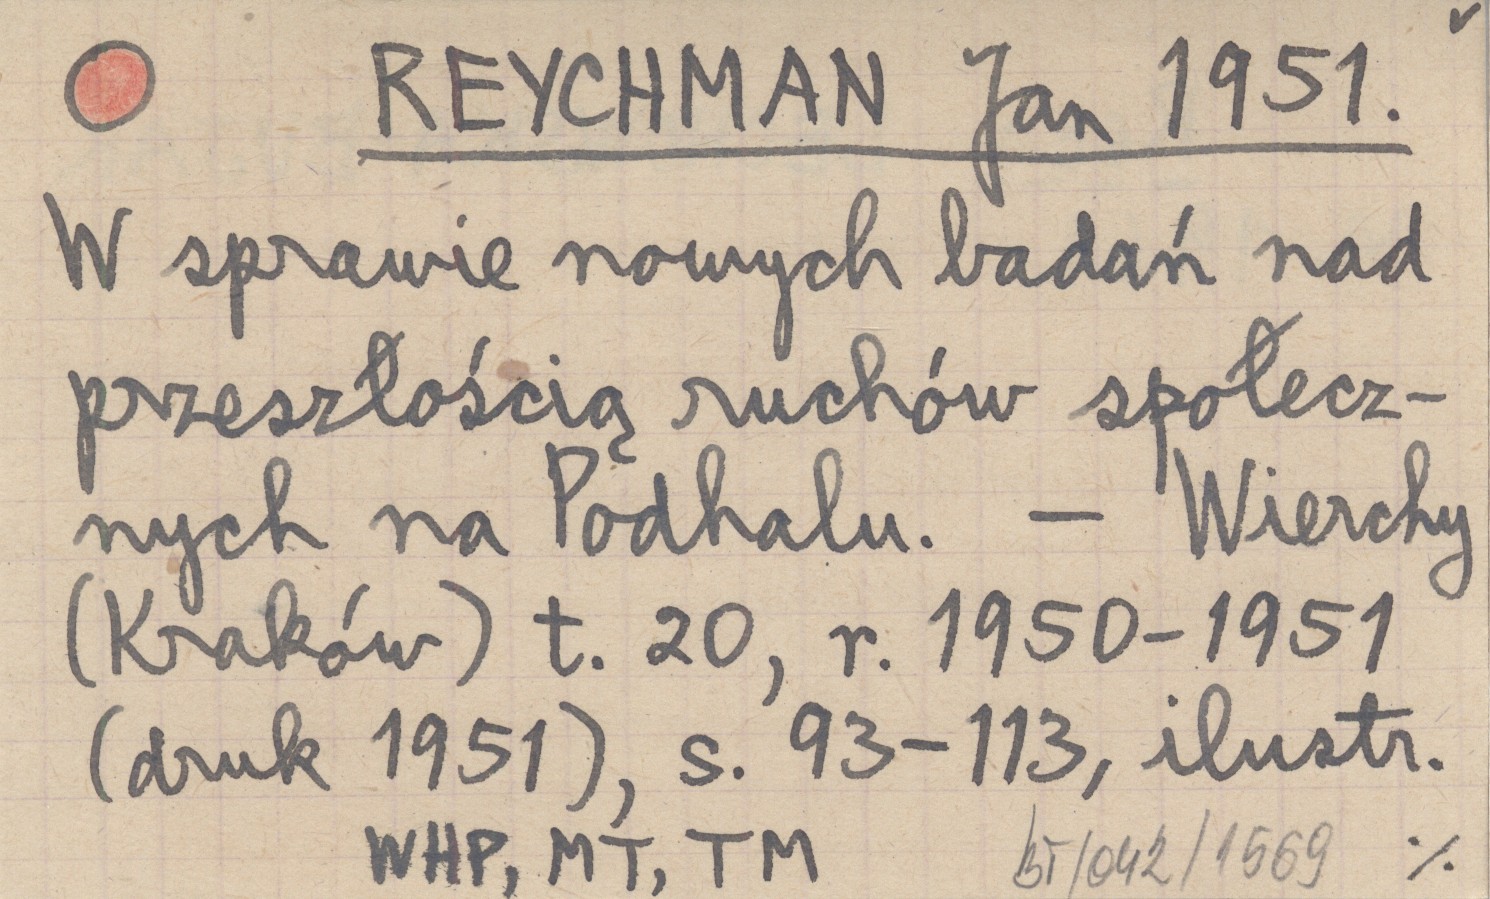 REYCHMAN Jan 1951.
W sprawie nowych badań nad
przeszłością ruchów społecz-
nych na Podhalu. — Wierchy
(Kraków) t. 20, r. 1950-1951
(druk 1951), s. 93-113, ilustr.
WHP, MT, TM BT/042/1569 ·/.